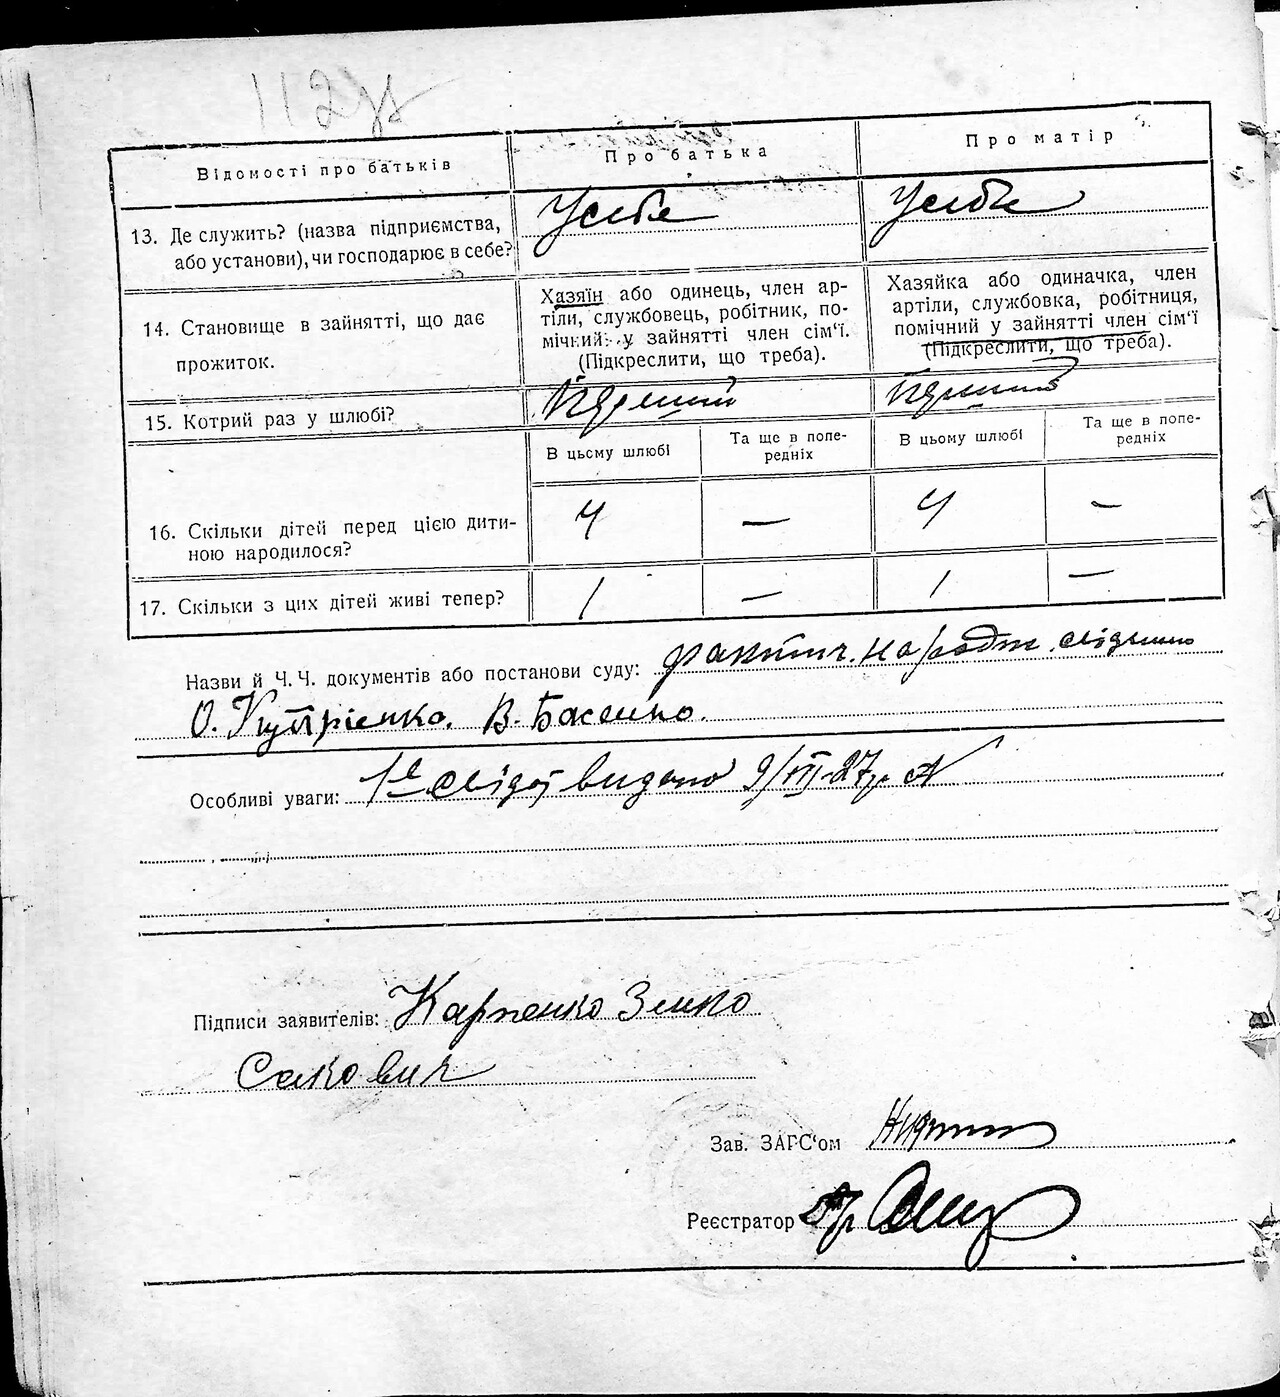 112
Відомості про батьків
Про батька
Про матір
13. Де служить? (назва підприємства,
або установи), чи господарює в себе?
У себе
У себе
14. Становище в зайнятті, що дає
прожиток.
Хазяїн або одинець, член ар-
тіли, службовець, робітник, по-
мічний у зайнятті член сім'ї.
(Підкреслити, що треба).
Хазяйка або одиначка, член
артіли, службовка, робітниця,
помічний у зайнятті член сім'ї
(Підкреслити, що треба).
15. Котрий раз у шлюбі?
Перший
Перший
В цьому шлюбі
Та ще в попе-
редніх
В цьому шлюбі
Та ще в попе-
редніх
16. Скільки дітей перед цією дити-
ною народилося?
4 — 4 —
17. Скільки з цих дітей живі тепер?
1 — 1 —
Назви й Ч. Ч. документів або постанови суду: фактич. народж.
О. Купрієнко. В. Басенко.
Особливі уваги: 1е свідоц видано 9/VII-27р
Підписи заявителів: Карпенко Зінько
Сакович
Зав. ЗАГС'ом
Реєстратор